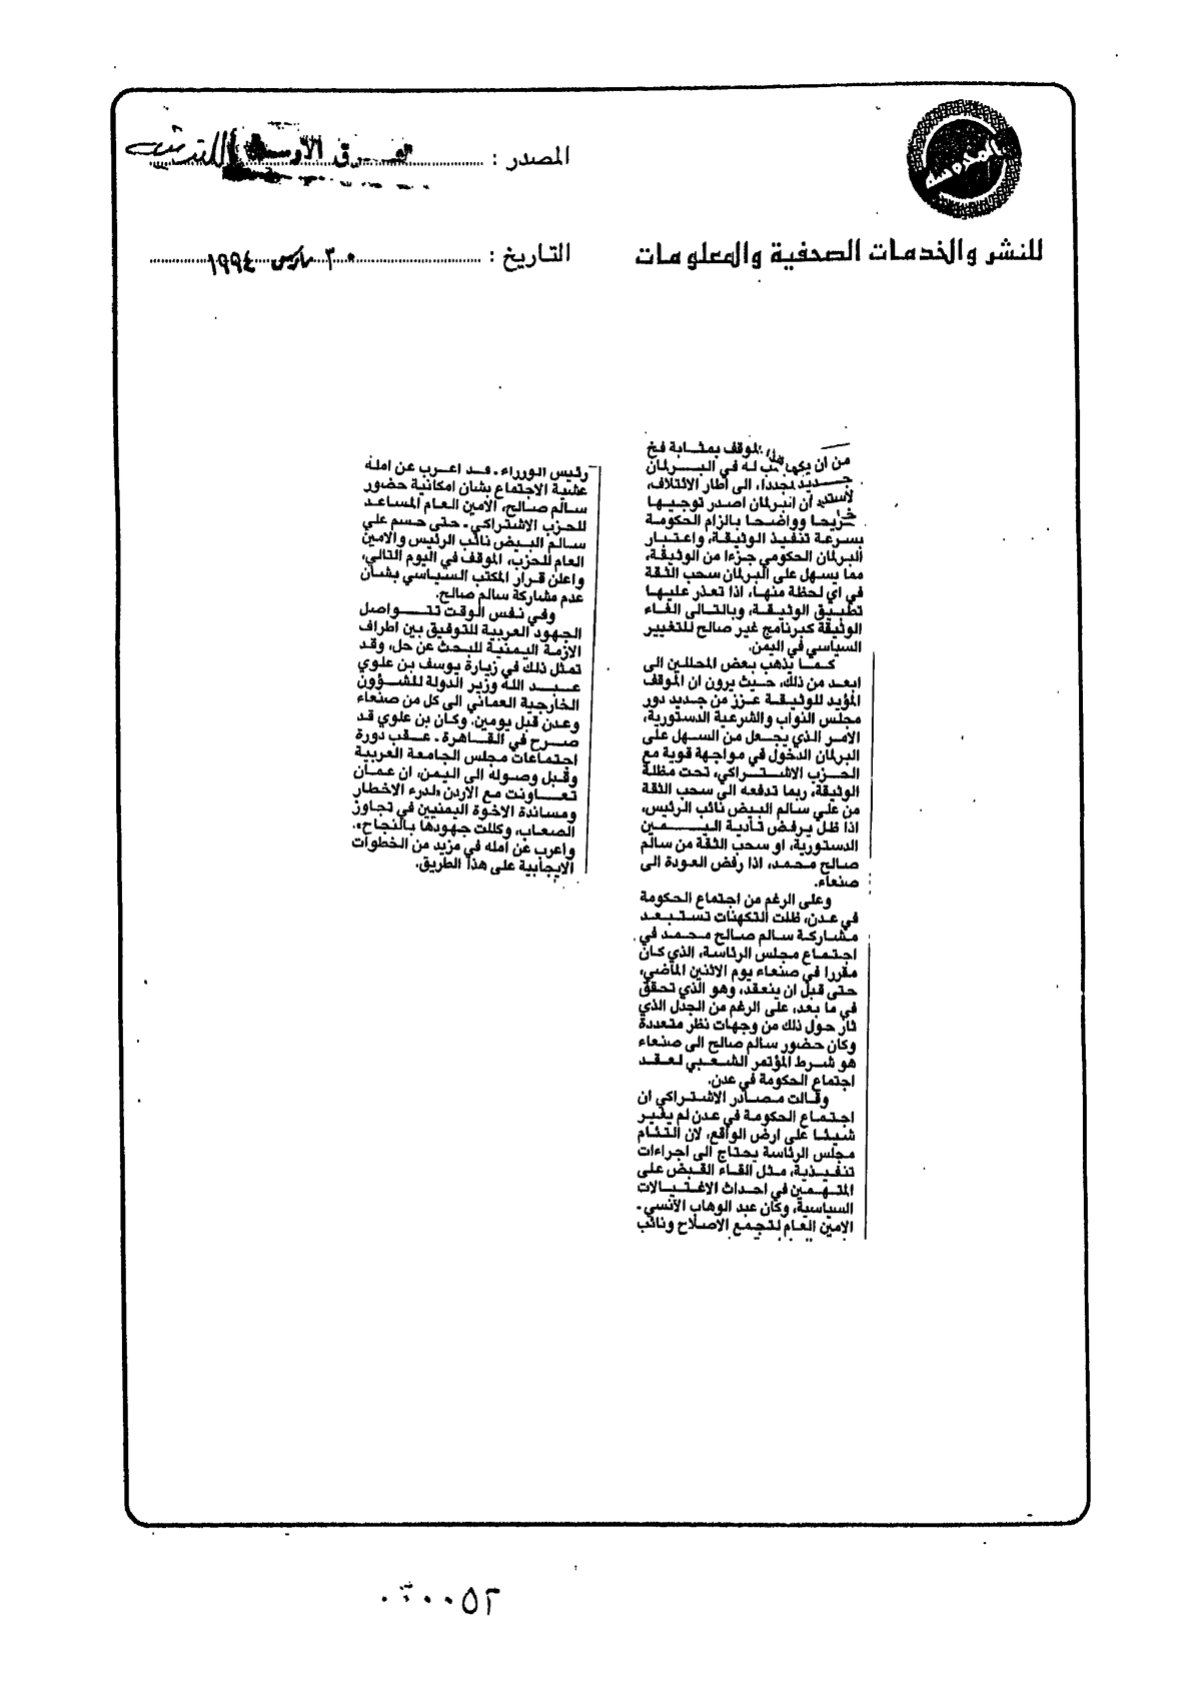 المصدر : الشرق الأوسط اللندنية
للنشر والخدمات الصحفية والمعلومات
التاريخ : ٣٠ مارس ١٩٩٤
الموقف بمثابة فخ
من ان يكون له في البرلمان
مجددا، الى اطار الائتلاف،
ان البرلمان اصدر توجيها
صريحا وواضحا بالزام الحكومة
بسرعة تنفيذ الوثيقة، واعتبار
البرلمان الحكومي جزءا من الوثيقة،
مما يسهل على البرلمان سحب الثقة
في اي لحظة منها، اذا تعذر عليها
تطبيق الوثيقة، وبالتالى الغاء
الوثيقة كبرنامج غير صالح للتغيير
السياسي في اليمن.
كما يذهب بعض المحللين الى
ابعد من ذلك، حيث يرون ان الموقف
المؤيد للوثيقة عزز من جديد دور
مجلس النواب والشرعية الدستورية،
الامر الذي يجعل من السهل على
البرلمان الدخول في مواجهة قوية مع
الحزب الاشتراكي، تحت مظلة
الوثيقة، ربما تدفعه الى سحب الثقة
من علي سالم البيض نائب الرئيس،
اذا ظل يرفض تادية اليمين
الدستورية، او سحب الثقة من سالم
صالح محمد، اذا رفض العودة الى
صنعاء.
وعلى الرغم من اجتماع الحكومة
في عدن، ظلت التكهنات تستبعد
مشاركة سالم صالح محمد في
اجتماع مجلس الرئاسة، الذي كان
مقررا في صنعاء يوم الاثنين الماضي،
حتى قبل ان ينعقد، وهو الذي تحقق
في ما بعد، على الرغم من الجدل الذي
ثار حول ذلك من وجهات نظر متعددة
وكان حضور سالم صالح الى صنعاء
هو شرط المؤتمر الشعبي لعقد
اجتماع الحكومة في عدن.
وقالت مصادر الاشتراكي ان
اجتماع الحكومة في عدن لم يغير
شيئا على ارض الواقع، لان التئام
مجلس الرئاسة يحتاج الى اجراءات
تنفيذية، مثل القاء القبض على
المتهمين في احداث الاغتيالات
السياسية، وكان عبد الوهاب الآنسي -
الامين العام لتجمع الاصلاح ونائب
رئيس الوزراء - قد اعرب عن امله
عشية الاجتماع بشان امكانية حضور
سالم صالح، الامين العام المساعد
للحزب الاشتراكي - حتى حسم علي
سالم البيض نائب الرئيس والامين
العام للحزب، الموقف في اليوم التالي،
واعلن قرار المكتب السياسي بشان
عدم مشاركة سالم صالح.
وفي نفس الوقت تتواصل
الجهود العربية للتوفيق بين اطراف
الازمة اليمنية للبحث عن حل، وقد
تمثل ذلك في زيارة يوسف بن علوي
عبد الله وزير الدولة للشؤون
الخارجية العماني الى كل من صنعاء
وعدن قبل يومين. وكان بن علوي قد
صرح في القاهرة - عقب دورة
اجتماعات مجلس الجامعة العربية
وقبل وصوله الى اليمن، ان عمان
تعاونت مع الاردن «لدرء الاخطار
ومساندة الاخوة اليمنيين في تجاوز
الصعاب، وكللت جهودها بالنجاح».
واعرب عن امله في مزيد من الخطوات
الايجابية على هذا الطريق.